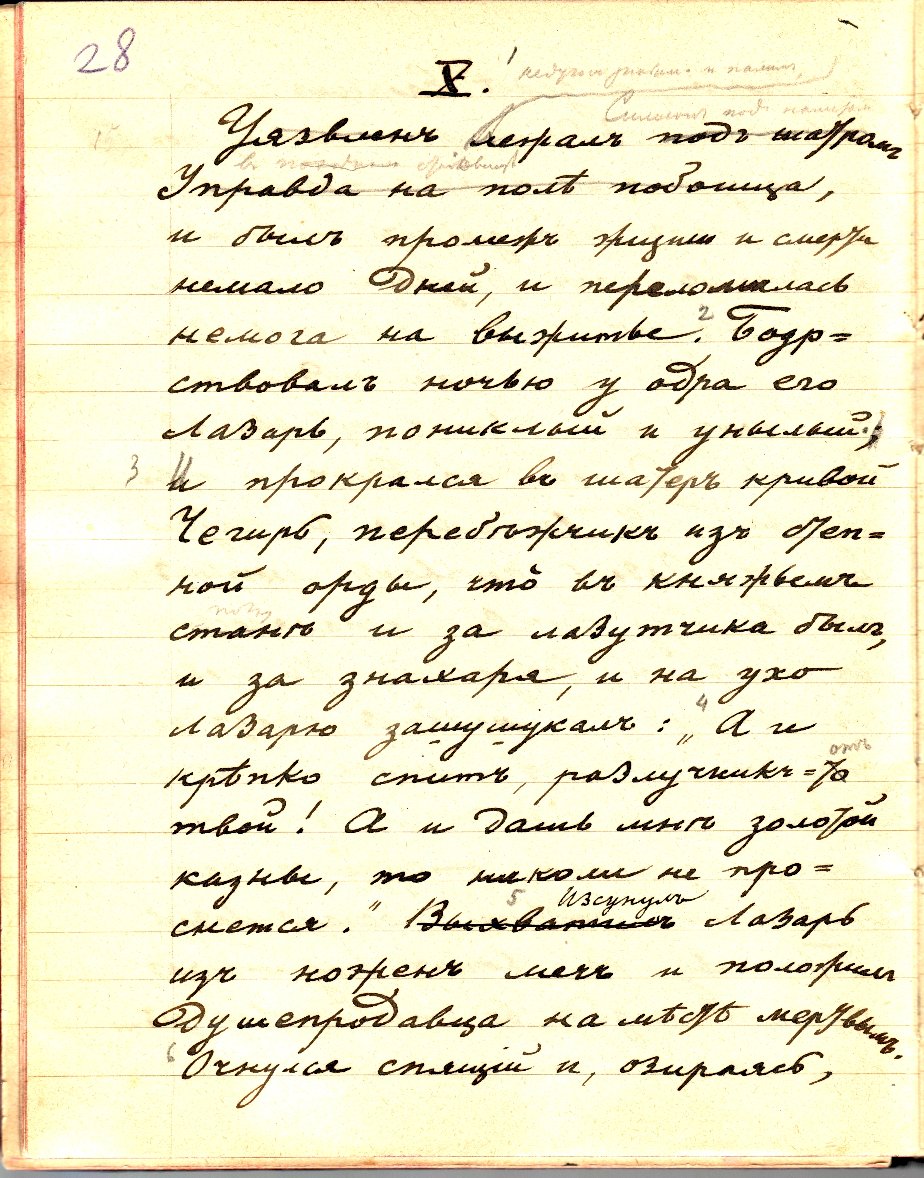 28
X.
Уязвленъ лежалъ подъ шатромъ
Управда на полѣ побоища,
и былъ промежъ жизни и смерти
немало дней, и переломилась
немога на выжитье. 2 Бодр=
ствовалъ ночью у одра его
Лазарь, пониклый и унылый;
3 И прокрался въ шатеръ кривой
Чегирь, перебѣжчикъ изъ степ=
ной орды, что̀ въ княжьемъ
станѣ и за лазутчика былъ,
и за знахаря, и на ухо
Лазарю зашушукалъ: 4 „А и
отъ
крѣпко спитъ, разлучникъ=то
твой! А и дашь мнѣ золотой
казны, то николи не про=
Изсунулъ
снется.“ 5 Выхватилъ Лазарь
изъ ноженъ мечъ и положилъ
Душепродавца на мѣстѣ мертвымъ.
6 Очнулся спящій и, озираясь,